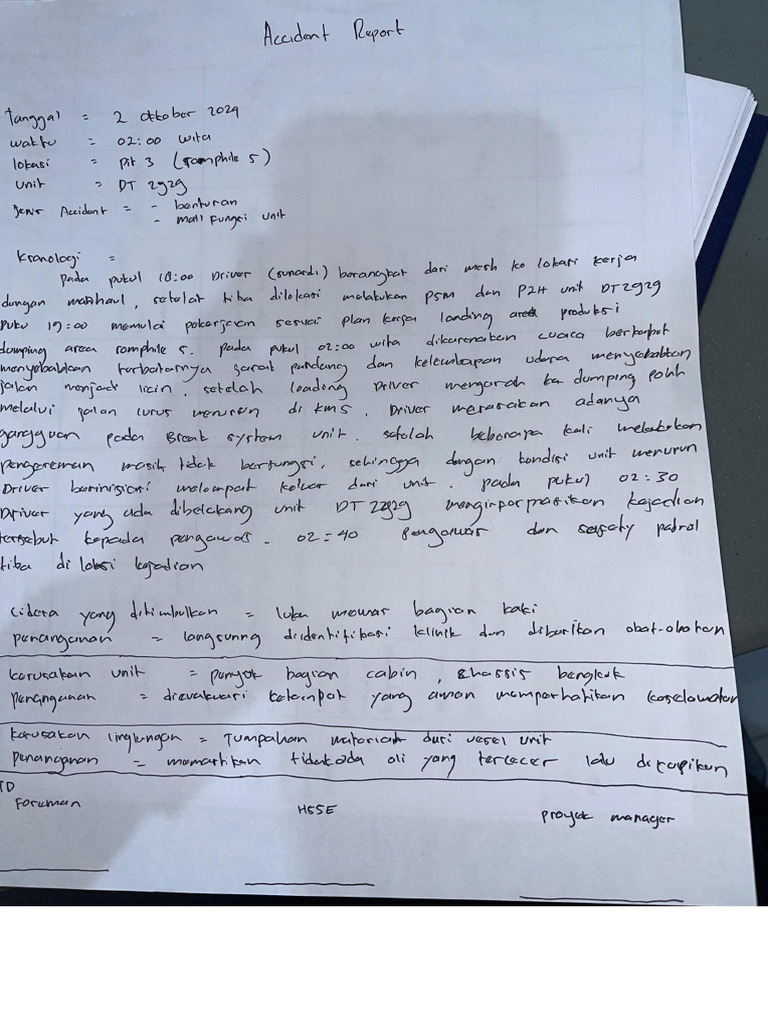 Accident Report
Tanggal = 2 Oktober 2024
waktu = 02:00 wita
lokasi = Pit 3 (romphile 5)
unit = DT 2929
Jenis Accident = - benturan
- mall fungsi unit
Kronologi =
Pada pukul 18:00 Driver (sunardi) berangkat dari mesh ke lokasi kerja
dengan manhaul, setelah tiba dilokasi melakukan PSM dan P2H unit DT2929
Pukul 19:00 memulai pekerjaan sesuai plan kerja loading area produksi
dumping area romphile 5. pada pukul 02:00 wita dikarenakan cuaca berkabut
menyebabkan terbatasnya jarak pandang dan kelembapan udara menyebabkan
jalan menjadi licin, setelah loading Driver mengarah ke dumping poin
melalui jalan lurus menurun di km5, Driver merasakan adanya
gangguan pada Break system unit. setelah beberapa kali melakukan
pengereman masih tidak berfungsi, sehingga dengan kondisi unit menurun
Driver berinisiasi melompat keluar dari unit. pada pukul 02:30
Driver yang ada dibelakang unit DT 2929 menginformasikan kejadian
tersebut kepada pengawas. 02:40 Pengawas dan safety patrol
tiba di lokasi kejadian
cidera yang ditimbulkan = luka memar bagian kaki
penanganan = langsunng diidentifikasi klinik dan diberikan obat-obatan
kerusakan unit = penyok bagian cabin, shassis bengkok
penanganan = dievakuasi ketempat yang aman memperhatikan keselamatan
kerusakan lingkungan = Tumpahan material dari vesel unit
Penanganan = memastikan tidak ada oli yang tercecer lalu dirapikan
TD
Foreman HSSE Proyek manager